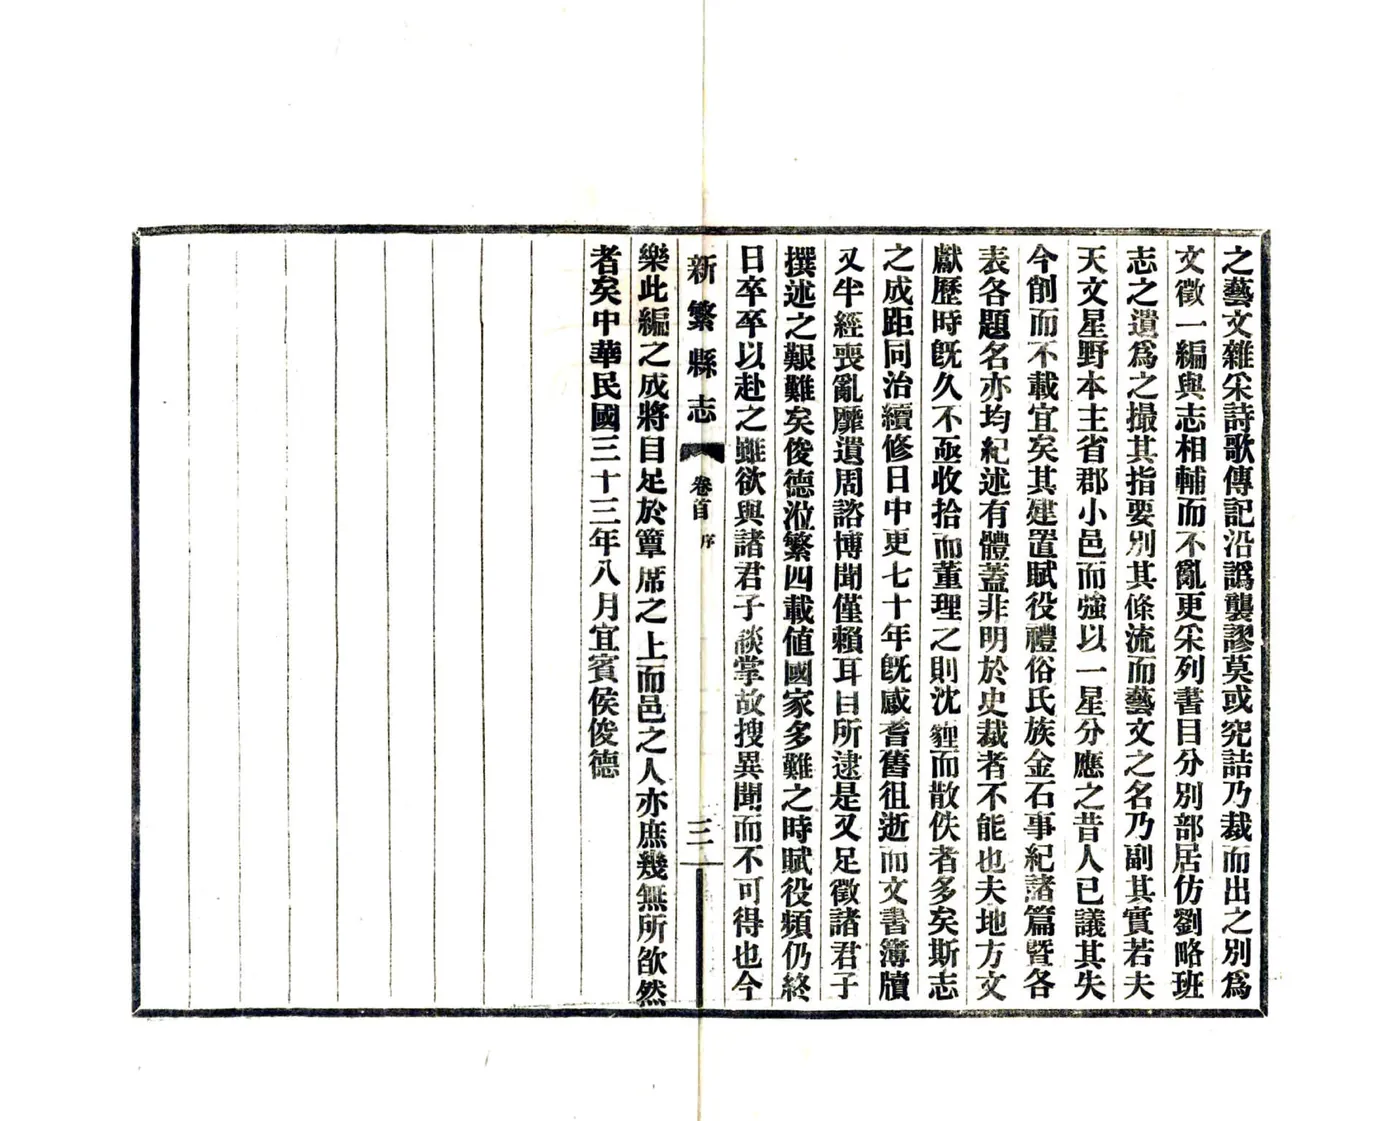 之藝文雜采詩歌傳記沿譌襲謬莫或究詰乃裁而出之別爲
文徵一編與志相輔而不亂更采列書目分別部居仿劉略班
志之遺爲之撮其指要別其條流而藝文之名乃副其實若夫
天文星野本主省郡小邑而強以一星分應之昔人已議其失
今削而不載宜矣其建置賦役禮俗氏族金石事紀諸篇暨各
表各題名亦均紀述有體蓋非明於史裁者不能也夫地方文
獻歷時旣久不亟收拾而董理之則沈薶而散佚者多矣斯志
之成距同治續修日中更七十年旣感耆舊徂逝而文書簿牘
又半經喪亂靡遺周諮博聞僅賴耳目所逮是又足徵諸君子
撰述之艱難矣俊德涖繁四載値國家多難之時賦役頻仍終
日卒卒以赴之雖欲與諸君子談掌故搜異聞而不可得也今
新繁縣志 卷首 序 三
樂此編之成將自足於簟席之上而邑之人亦庶幾無所欿然
者矣中華民國三十三年八月宜賓侯俊德